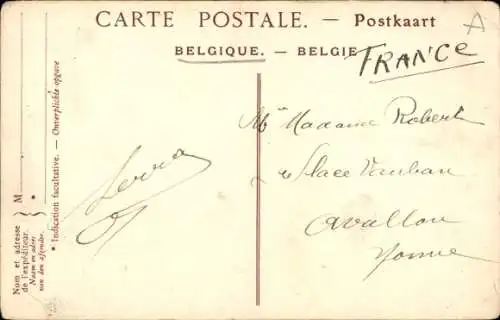 CARTE POSTALE. — Postkaart
BELGIQUE. — BELGIE
FRANCE
A
Madame Robert
Place Vauban
Avallon
Yonne
Nom et adresse
de l'expéditeur.
Naam en adres
van den afzender.
M
* Indication facultative. — Onverplichte opgave